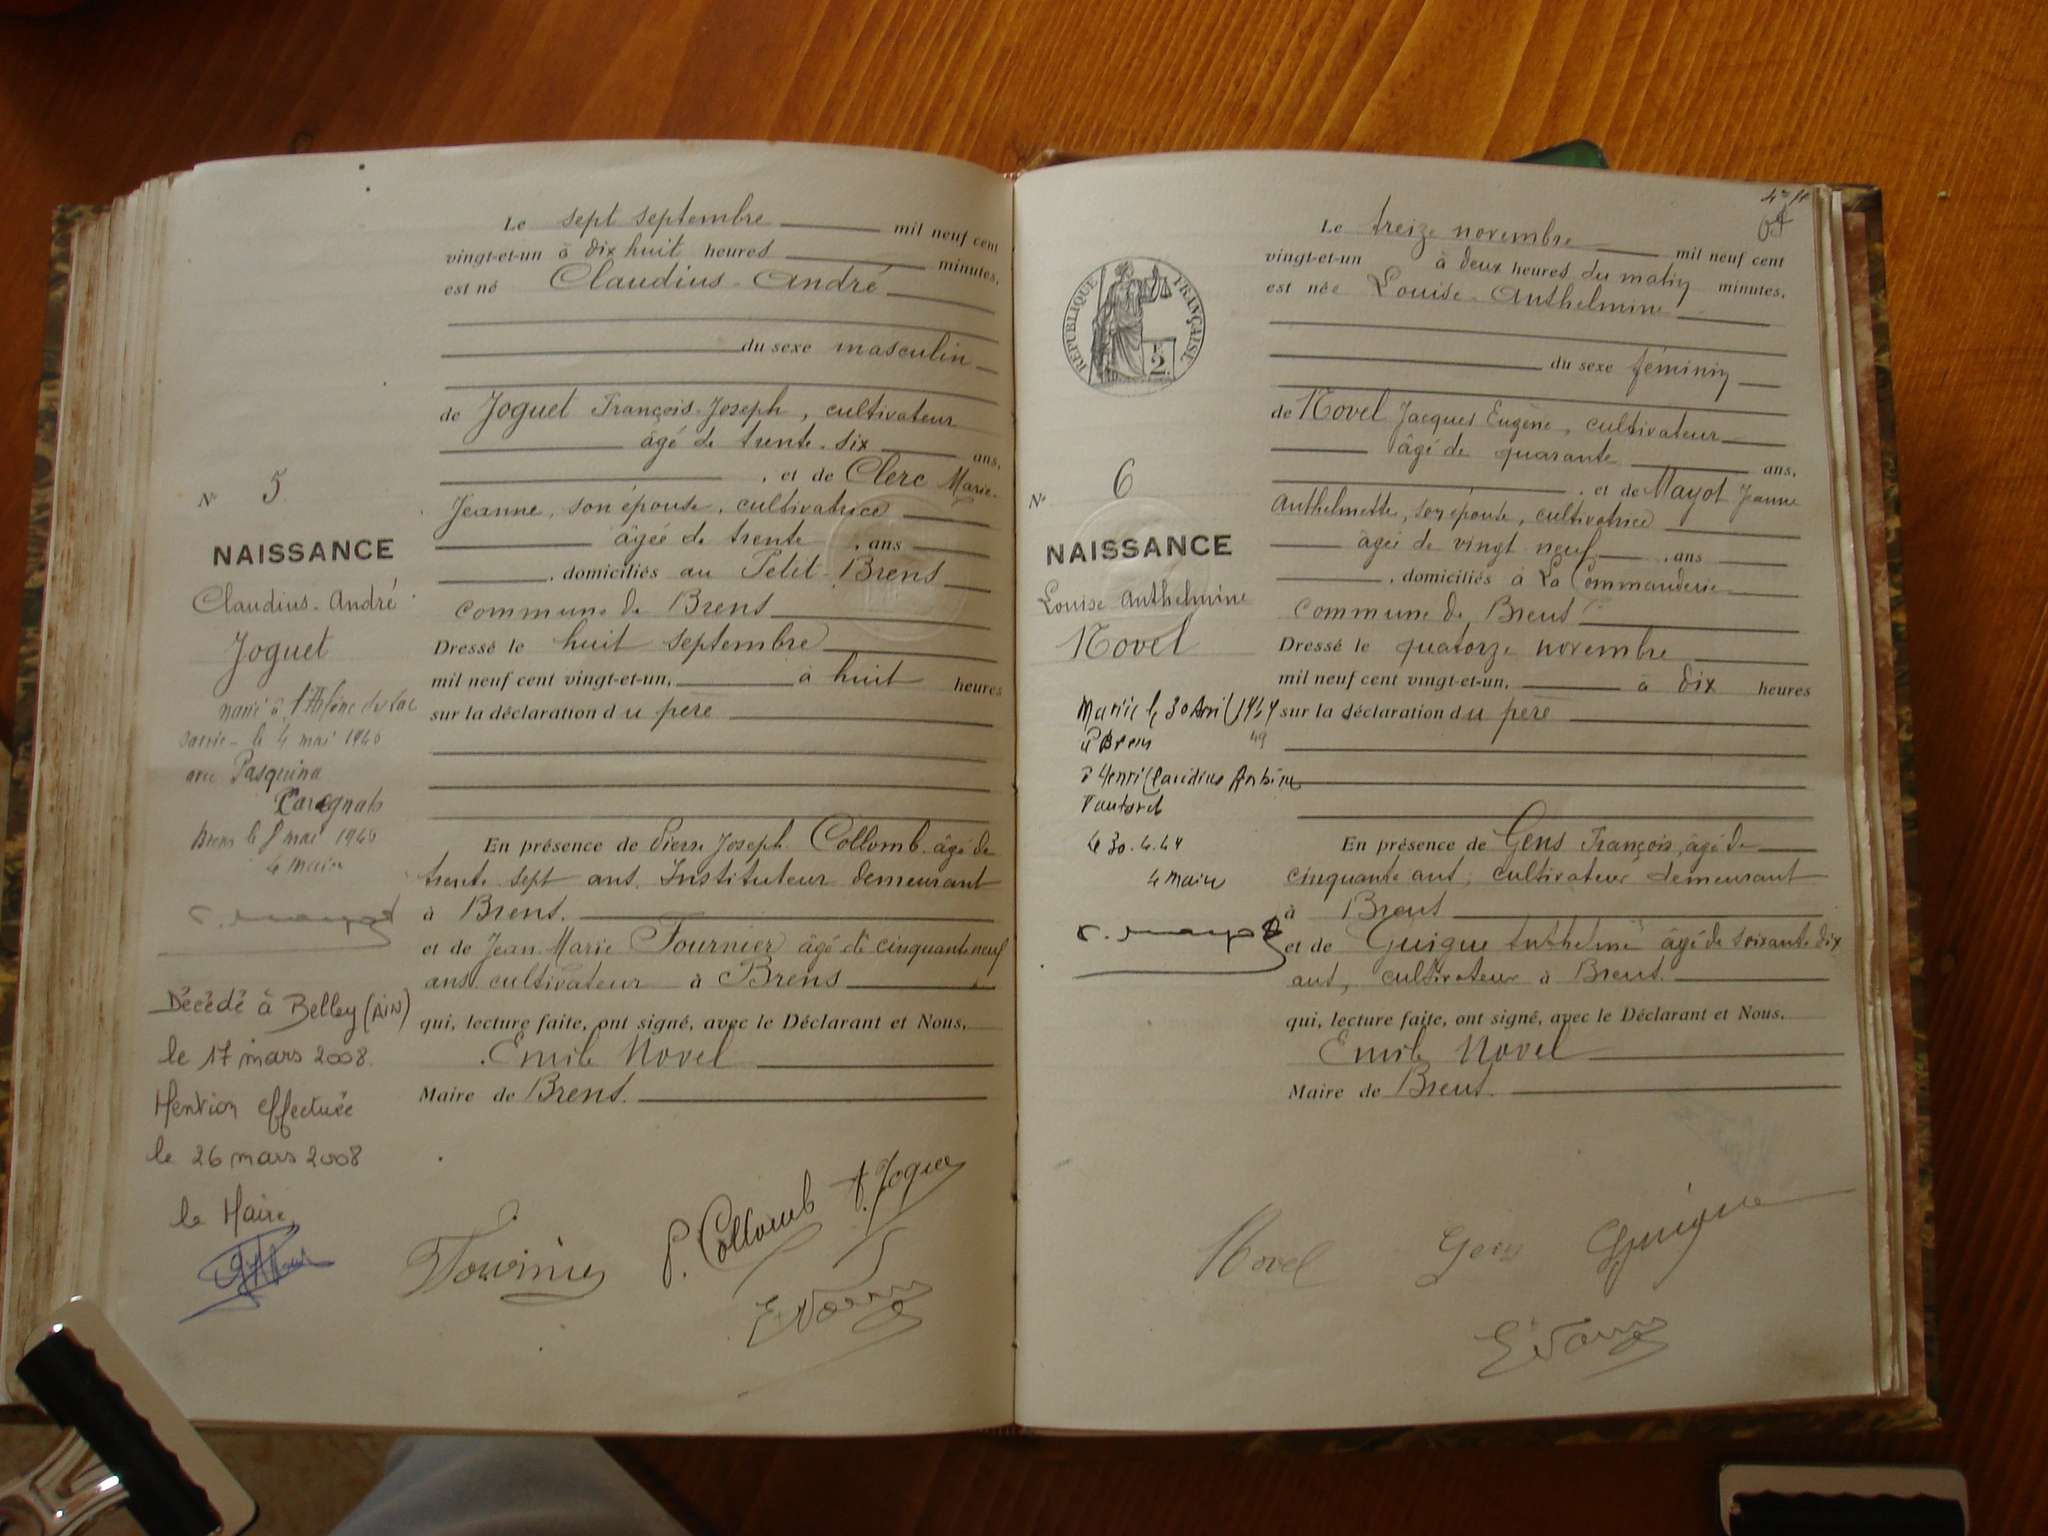 Le sept septembre mil neuf cent
vingt-et-un à dix huit heures minutes,
est né Claudius-André
du sexe masculin
de Joguet François-Joseph, cultivateur
âgé de trente-six ans,
, et de Clerc Marie-
Jeanne, son épouse, cultivatrice
âgée de trente , ans
, domiciliés au Petit-Brens
commune de Brens
Dressé le huit septembre
mil neuf cent vingt-et-un, à huit heures
sur la déclaration du père
En présence de Pierre Joseph Collomb âgé de
trente-sept ans, Instituteur demeurant
à Brens.
et de Jean-Marie Fournier âgé de cinquante neuf
ans cultivateur à Brens
qui, lecture faite, ont signé, avec le Déclarant et Nous,
Emile Novel
Maire de Brens.
N° 5
NAISSANCE
Claudius-André
Joguet
le 4 mai 1940
avec Pasquina
Brens le 8 mai 1940
le maire
Décédé à Belley (AIN)
le 17 mars 2008.
Mention effectuée
le 26 mars 2008
le Maire,
Fournier
P. Collomb
F. Joguet
E Novel
Le treize novembre mil neuf cent
vingt-et-un à deux heures du matin minutes,
est née Louise-Anthelmine
du sexe féminin
de Novel Jacques Eugène, cultivateur
âgé de quarante ans,
, et de Mayot Jeanne
Anthelmette, son épouse, cultivatrice
âgée de vingt neuf , ans
, domiciliés à La Commanderie
commune de Brens
Dressé le quatorze novembre
mil neuf cent vingt-et-un, à dix heures
sur la déclaration du père
En présence de Gens François, âgé de
cinquante ans, cultivateur demeurant
à Brens
et de Guigue Anthelme âgé de soixante dix
ans, cultivateur à Brens.
qui, lecture faite, ont signé, avec le Déclarant et Nous,
Emile Novel
Maire de Brens.
RÉPUBLIQUE FRANÇAISE
N° 6
NAISSANCE
Louise Anthelmine
Novel
à Brens
le maire
Novel
Gens
Guigue
E Novel